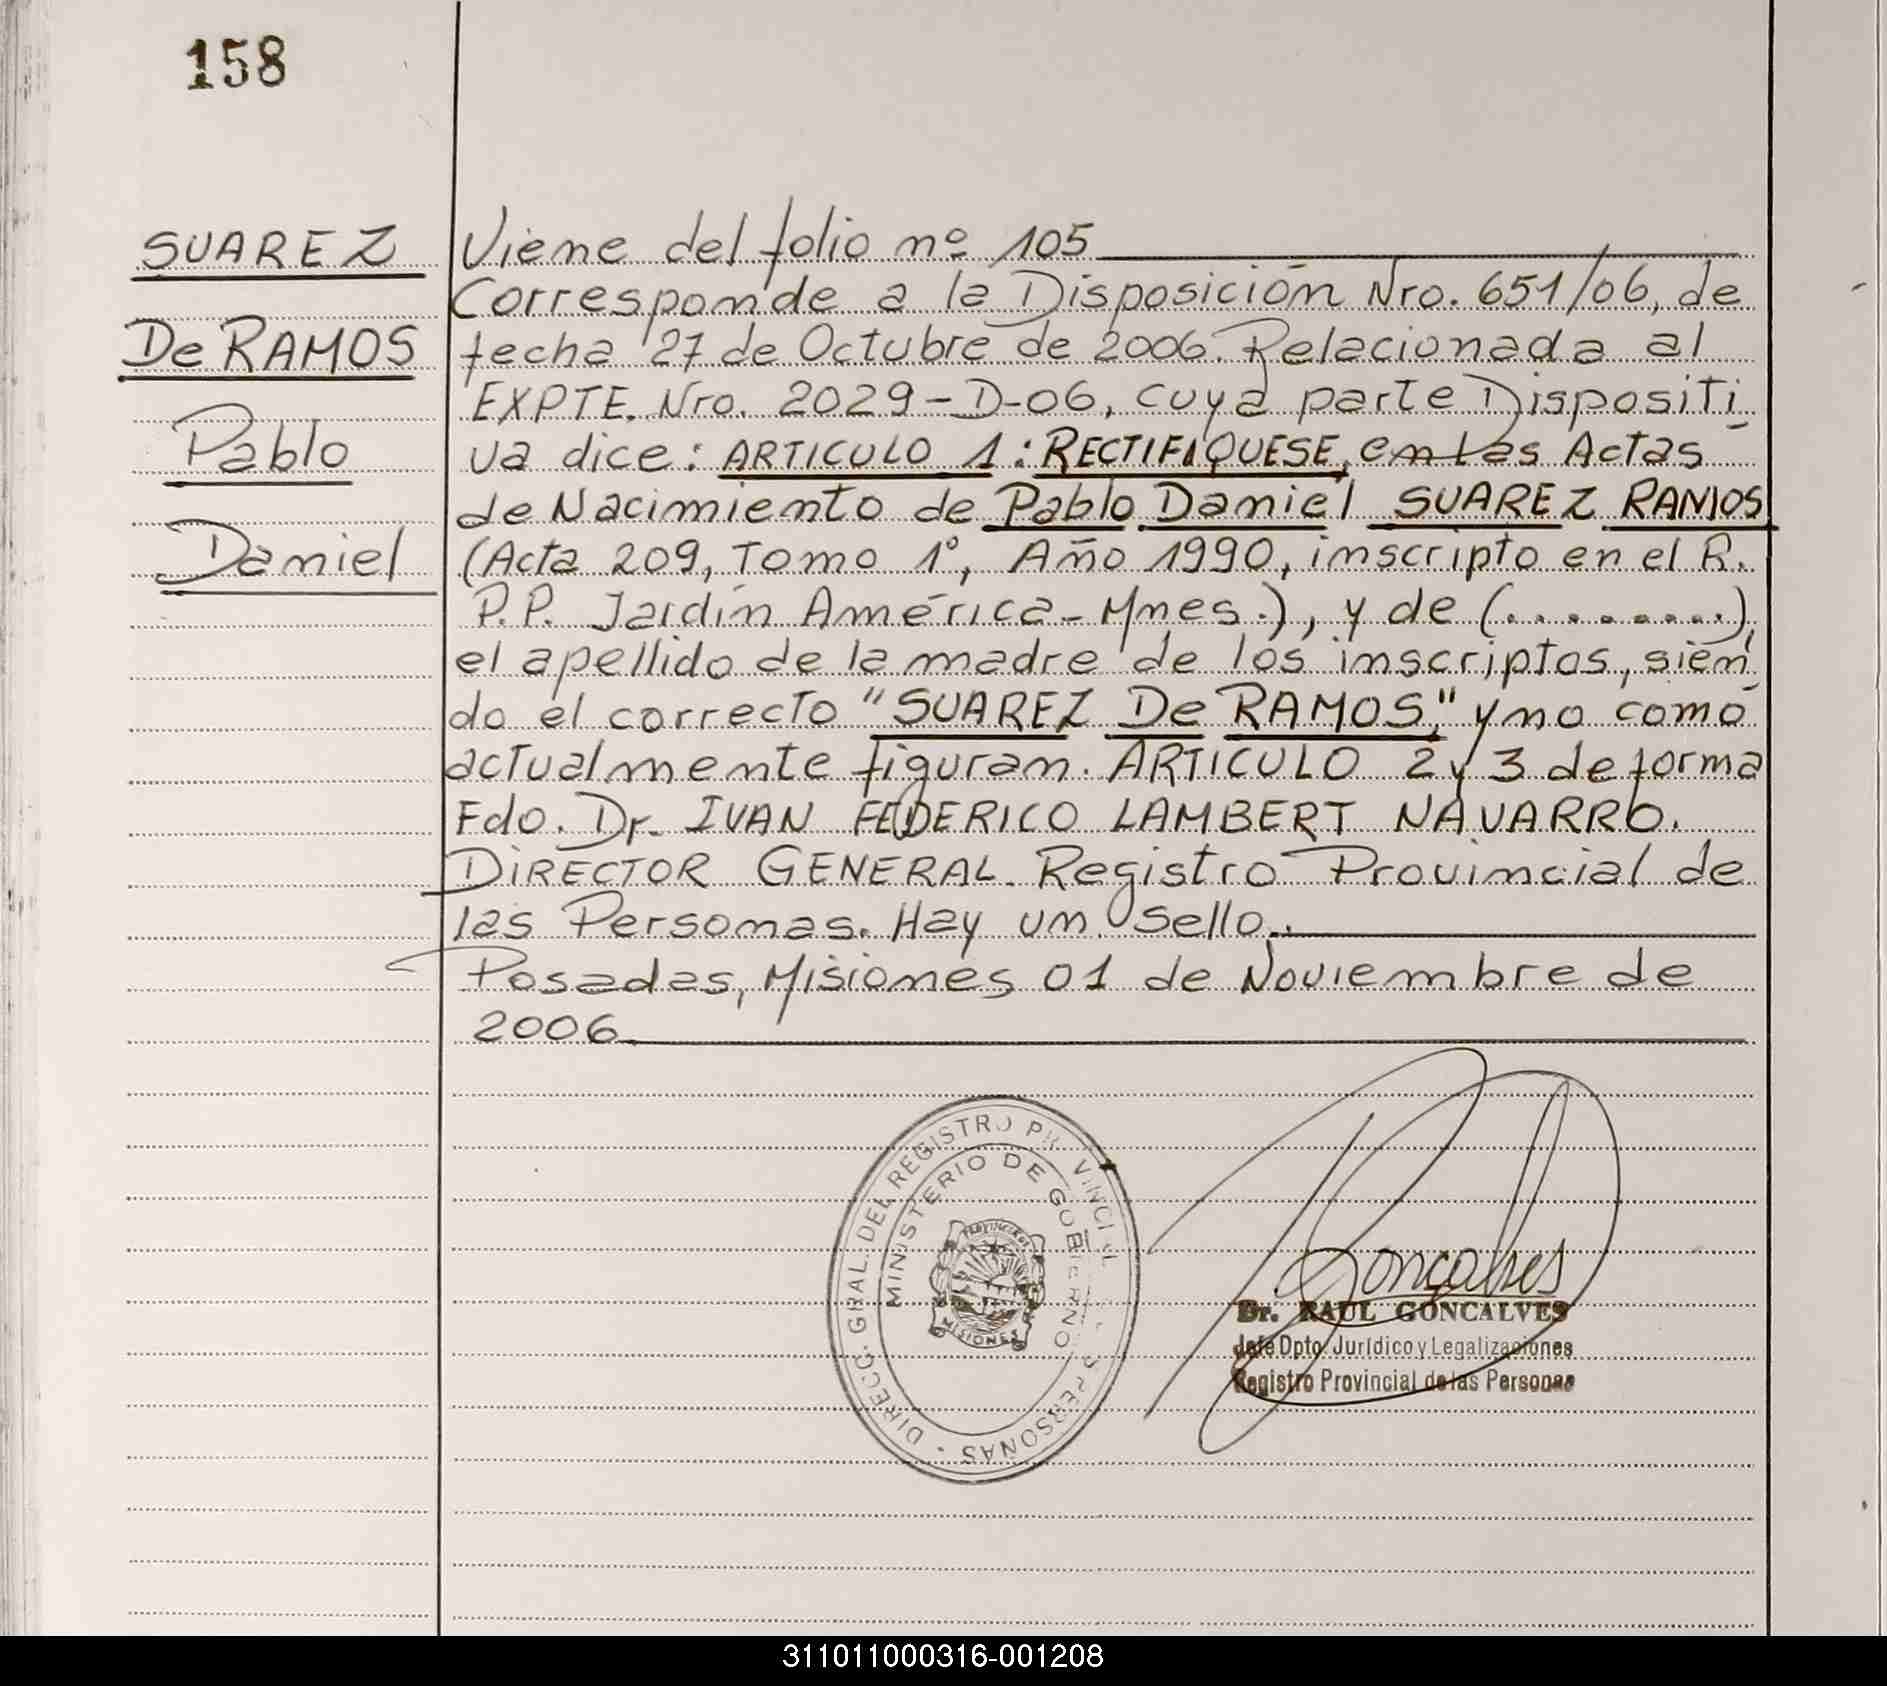 158
SUAREZ
De RAMOS
Pablo
Daniel
Viene del folio nº 105
Corresponde a la Disposición Nro. 651/06, de
fecha 27 de Octubre de 2006. Relacionada al
EXPTE. Nro. 2029-D-06, cuya parte Dispositi
va dice: ARTICULO 1: RECTIFIQUESE, en las Actas
de Nacimiento de Pablo Daniel SUAREZ RAMOS
(Acta 209, Tomo 1º, Año 1990, inscripto en el R.
P.P. Jardín América-Mnes.), y de (.........),
el apellido de la madre de los inscriptos, sien
do el correcto "SUAREZ De RAMOS," y no como
actualmente figuran. ARTICULO 2 y 3 de forma
Fdo. Dr. IVAN FEDERICO LAMBERT NAVARRO.
DIRECTOR GENERAL. Registro Provincial de
las Personas. Hay un Sello.
Posadas, Misiones 01 de Noviembre de
2006
DIRECC. GRAL. DEL REGISTRO PROVINCIAL DE LAS PERSONAS
MINISTERIO DE GOBIERNO
MISIONES
Goncalves
Dr. RAUL GONCALVES
Jefe Dpto. Jurídico y Legalizaciones
Registro Provincial de las Personas
311011000316-001208